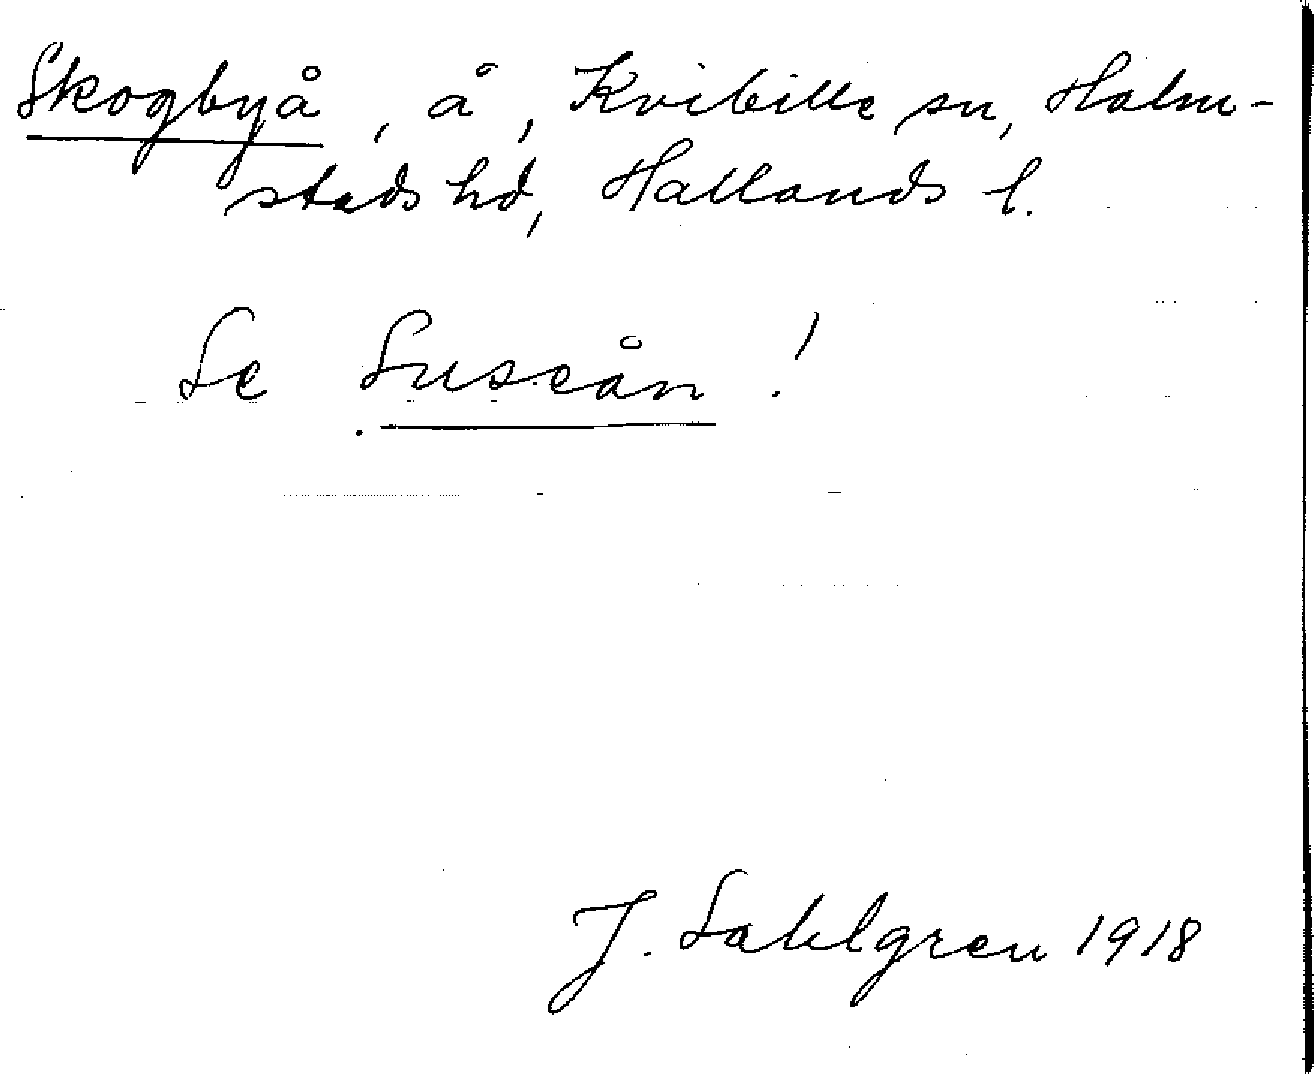 Skogbyå, å, Kvibille sn, Halm-
stads hd, Hallands l.
Se Suseån!
J. Sahlgren 1918